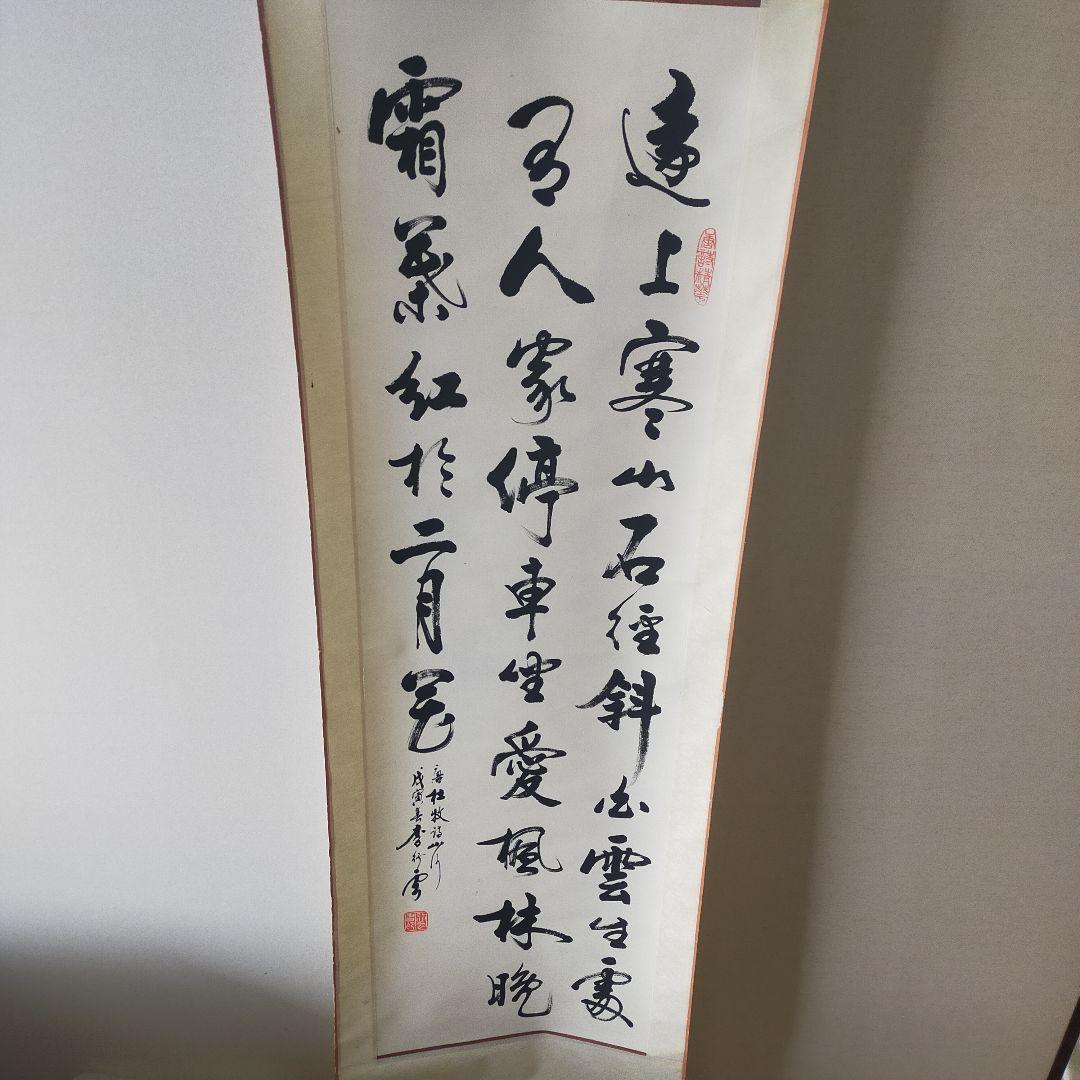 遠上寒山石徑斜白雲生處
有人家停車坐愛楓林晚
霜葉紅於二月花
唐杜牧詩山行
戊寅春李行雲